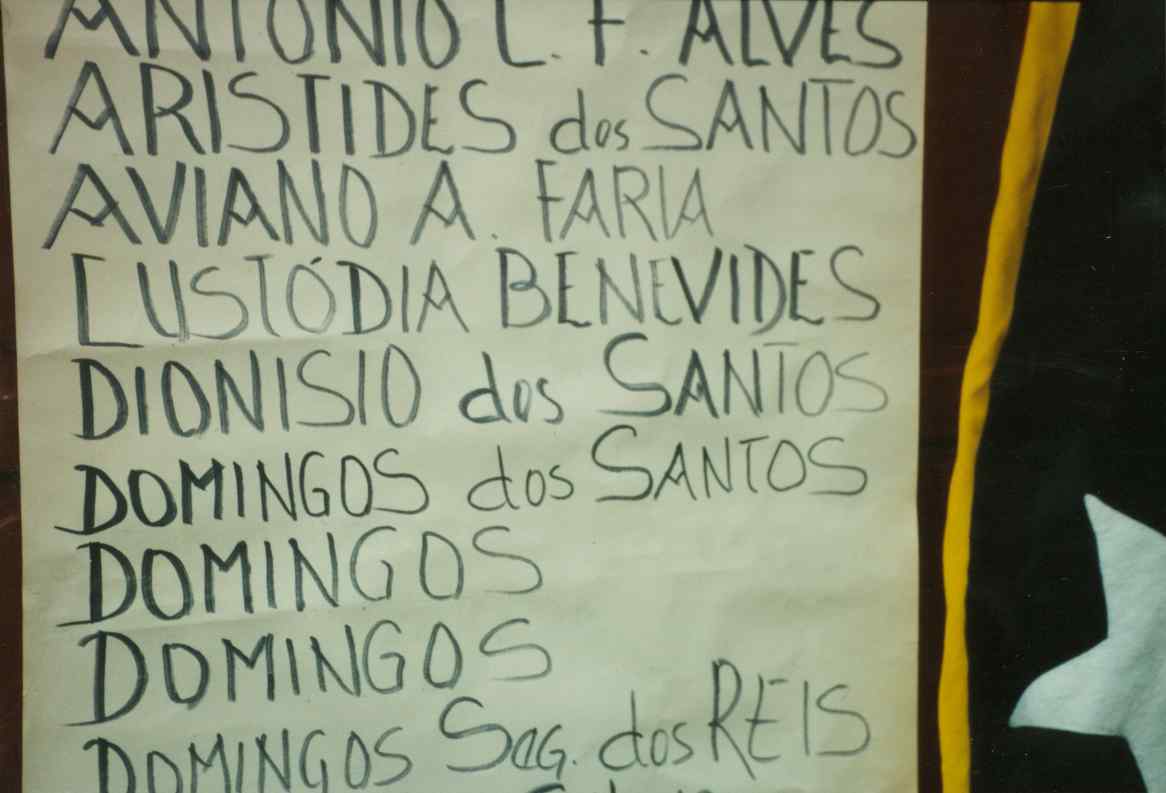 ANTONIO L. F. ALVES
ARISTIDES dos SANTOS
AVIANO A. FARIA
CUSTÓDIA BENEVIDES
DIONISIO dos SANTOS
DOMINGOS dos SANTOS
DOMINGOS
DOMINGOS
DOMINGOS Sag. dos REIS